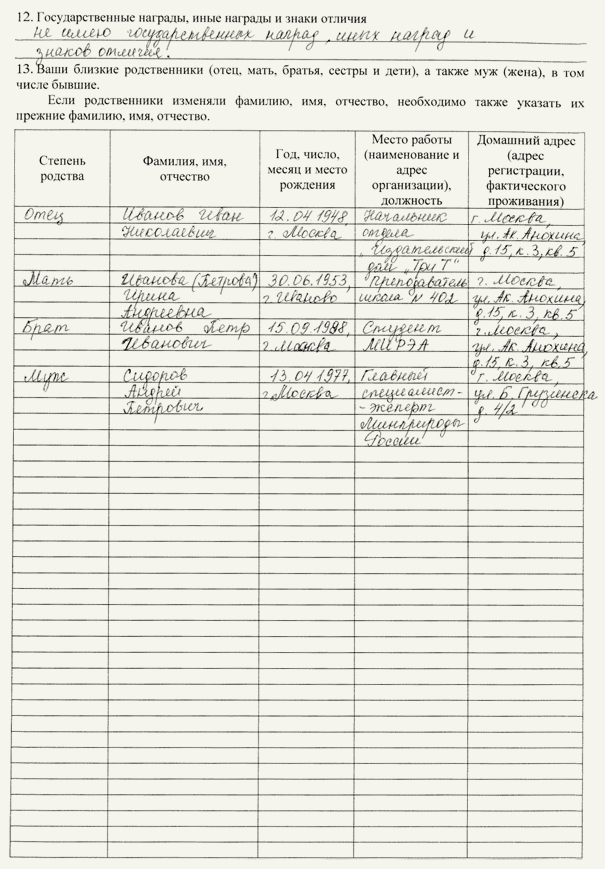 12. Государственные награды, иные награды и знаки отличия
не имею государственных наград, иных наград и
знаков отличия.
13. Ваши близкие родственники (отец, мать, братья, сестры и дети), а также муж (жена), в том
числе бывшие.
Если родственники изменяли фамилию, имя, отчество, необходимо также указать их
прежние фамилию, имя, отчество.
Степень
родства
Фамилия, имя,
отчество
Год, число,
месяц и место
рождения
Место работы
(наименование и
адрес
организации),
должность
Домашний адрес
(адрес
регистрации,
фактического
проживания)
Отец
Иванов Иван
Николаевич
12.04.1948,
г. Москва
Начальник
отдела
„Издательский
дом „Три Т"
г. Москва,
ул. Ак. Анохина,
д.15, к.3, кв.5
Мать
Иванова (Петрова)
Ирина
Андреевна
30.06.1953,
г. Иваново
Преподаватель
школа № 402
г. Москва,
ул. Ак. Анохина,
д.15, к.3, кв.5
Брат
Иванов Петр
Иванович
15.09.1988,
г. Москва
Студент
МИРЭА
г. Москва,
ул. Ак. Анохина,
д.15, к.3, кв.5
Муж
Сидоров
Андрей
Петрович
13.04.1977,
г. Москва
Главный
специалист-
-эксперт
Минприроды
России
г. Москва,
ул. Б. Грузинска
д. 4/2